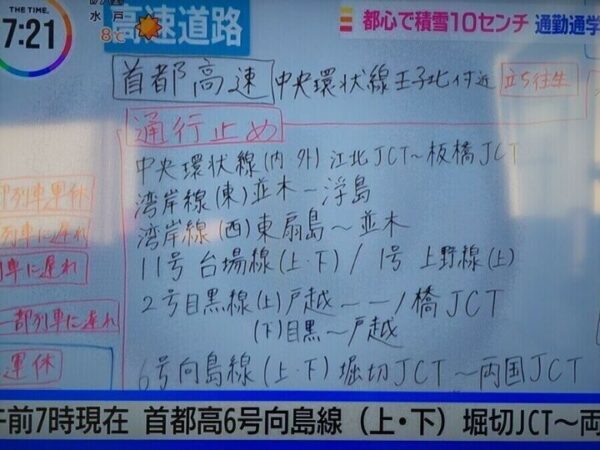 THE TIME,
7:21
水戸
8℃
高速道路
都心で積雪10センチ 通勤通学
首都高速 中央環状線王子北付近 立ち往生
通行止め
中央環状線(内・外)江北JCT~板橋JCT
湾岸線(東)並木-浮島
湾岸線(西)東扇島~並木
11号 台場線(上・下)/1号 上野線(上)
2号目黒線(上)戸越~一ノ橋JCT
(下)目黒~戸越
6号向島線(上・下)堀切JCT~両国JCT
部列車運休
列車に遅れ
車に遅れ
一部列車に遅れ
運休
午前7時現在 首都高6号向島線(上・下)堀切JCT~両